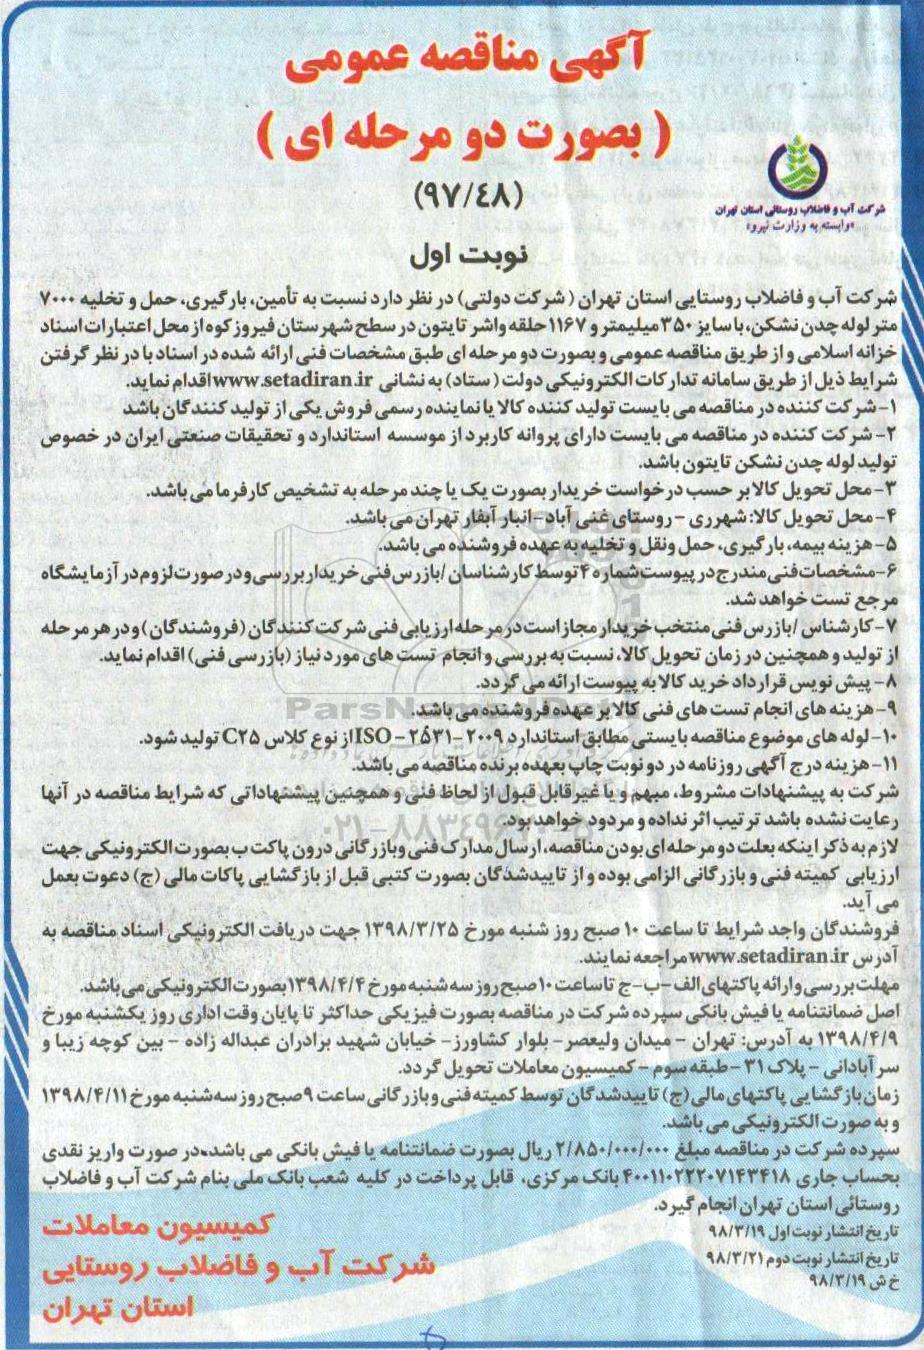 آگهی مناقصه عمومی
( بصورت دو مرحله ای )
(۹۷/۴۸)
شرکت آب و فاضلاب روستائی استان تهران
«وابسته به وزارت نیرو»
نوبت اول
شرکت آب و فاضلاب روستایی استان تهران ( شرکت دولتی) در نظر دارد نسبت به تأمین، بارگیری، حمل و تخلیه ۷۰۰۰
متر لوله چدن نشکن، با سایز ۳۵۰ میلیمتر و ۱۱۶۷ حلقه واشر تایتون در سطح شهرستان فیروزکوه از محل اعتبارات اسناد
خزانه اسلامی و از طریق مناقصه عمومی و بصورت دو مرحله ای طبق مشخصات فنی ارائه شده در اسناد با در نظر گرفتن
شرایط ذیل از طریق سامانه تدارکات الکترونیکی دولت ( ستاد) به نشانی www.setadiran.ir اقدام نماید.
۱-شرکت کننده در مناقصه می بایست تولید کننده کالا یا نماینده رسمی فروش یکی از تولید کنندگان باشد
۲- شرکت کننده در مناقصه می بایست دارای پروانه کاربرد از موسسه استاندارد و تحقیقات صنعتی ایران در خصوص
تولید لوله چدن نشکن تایتون باشد.
۳- محل تحویل کالا بر حسب درخواست خریدار بصورت یک یا چند مرحله به تشخیص کارفرما می باشد.
۴- محل تحویل کالا: شهرری - روستای غنی آباد -انبار آبفار تهران می باشد.
۵- هزینه بیمه، بارگیری، حمل ونقل و تخلیه به عهده فروشنده می باشد.
۶-مشخصات فنی مندرج در پیوست شماره ۴ توسط کارشناسان /بازرس فنی خریدار بررسی و در صورت لزوم در آزمایشگاه
مرجع تست خواهد شد.
۷-کارشناس /بازرس فنی منتخب خریدار مجاز است در مرحله ارزیابی فنی شرکت کنندگان (فروشندگان) و در هر مرحله
از تولید و همچنین در زمان تحویل کالا، نسبت به بررسی و انجام تست های مورد نیاز (بازرسی فنی) اقدام نماید.
۸- پیش نویس قرارداد خرید کالا به پیوست ارائه می گردد.
ParsNamadData
۹- هزینه های انجام تست های فنی کالا بر عهده فروشنده می باشد.
۱۰- لوله های موضوع مناقصه بایستی مطابق استاندارد ۲۰۰۹-ISO - ۲۵۳۱ از نوع کلاس C۲۵ تولید شود.
۱۱- هزینه درج آگهی روزنامه در دو نوبت چاپ بعهده برنده مناقصه می باشد.
شرکت به پیشنهادات مشروط، مبهم و یا غیرقابل قبول از لحاظ فنی و همچنین پیشنهاداتی که شرایط مناقصه در آنها
رعایت نشده باشد ترتیب اثر نداده و مردود خواهد بود.
لازم به ذکر اینکه بعلت دو مرحله ای بودن مناقصه، ارسال مدارک فنی وبازرگانی درون پاکت ب بصورت الکترونیکی جهت
ارزیابی کمیته فنی و بازرگانی الزامی بوده و از تاییدشدگان بصورت کتبی قبل از بازگشایی پاکات مالی (ج) دعوت بعمل
می آید.
فروشندگان واجد شرایط تا ساعت ۱۰ صبح روز شنبه مورخ ۱۳۹۸/۳/۲۵ جهت دریافت الکترونیکی اسناد مناقصه به
آدرس www.setadiran.ir مراجعه نمایند.
مهلت بررسی و ارائه پاکتهای الف-ب-ج تا ساعت ۱۰ صبح روز سه شنبه مورخ ۱۳۹۸/۴/۴ بصورت الکترونیکی می باشد.
اصل ضمانتنامه یا فیش بانکی سپرده شرکت در مناقصه بصورت فیزیکی حداکثر تا پایان وقت اداری روز یکشنبه مورخ
۱۳۹۸/۴/۹ به آدرس: تهران - میدان ولیعصر- بلوار کشاورز- خیابان شهید برادران عبداله زاده - بین کوچه زیبا و
سرآبادانی - پلاک ۳۱ -طبقه سوم - کمیسیون معاملات تحویل گردد.
زمان بازگشایی پاکتهای مالی (ج) تاییدشدگان توسط کمیته فنی و بازرگانی ساعت ۹ صبح روز سه شنبه مورخ ۱۳۹۸/۴/۱۱
و به صورت الکترونیکی می باشد.
سپرده شرکت در مناقصه مبلغ ۲/۸۵۰/۰۰۰/۰۰۰ ریال بصورت ضمانتنامه یا فیش بانکی می باشد.در صورت واریز نقدی
بحساب جاری ۴۰۰۱۱۰۲۲۲۰۷۱۴۳۴۱۸ بانک مرکزی، قابل پرداخت در کلیه شعب بانک ملی بنام شرکت آب و فاضلاب
روستائی استان تهران انجام گیرد.
تاریخ انتشار نوبت اول ۹۸/۳/۱۹
تاریخ انتشار نوبت دوم ۹۸/۳/۲۱
خ ش ۹۸/۳/۱۹
کمیسیون معاملات
شرکت آب و فاضلاب روستایی
استان تهران